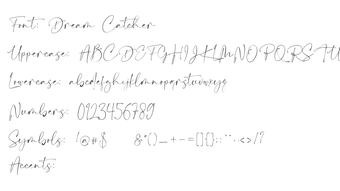 Font: Dream Catcher
Uppercase: ABCDEFGHIJKLMNOPQRSTU
Lowercase: abcdefghijklmnopqrstuvwxyz
Numbers: 0123456789
Symbols: !@#$ &*()_+-=[]{}:;"',.<>/?
Accents: